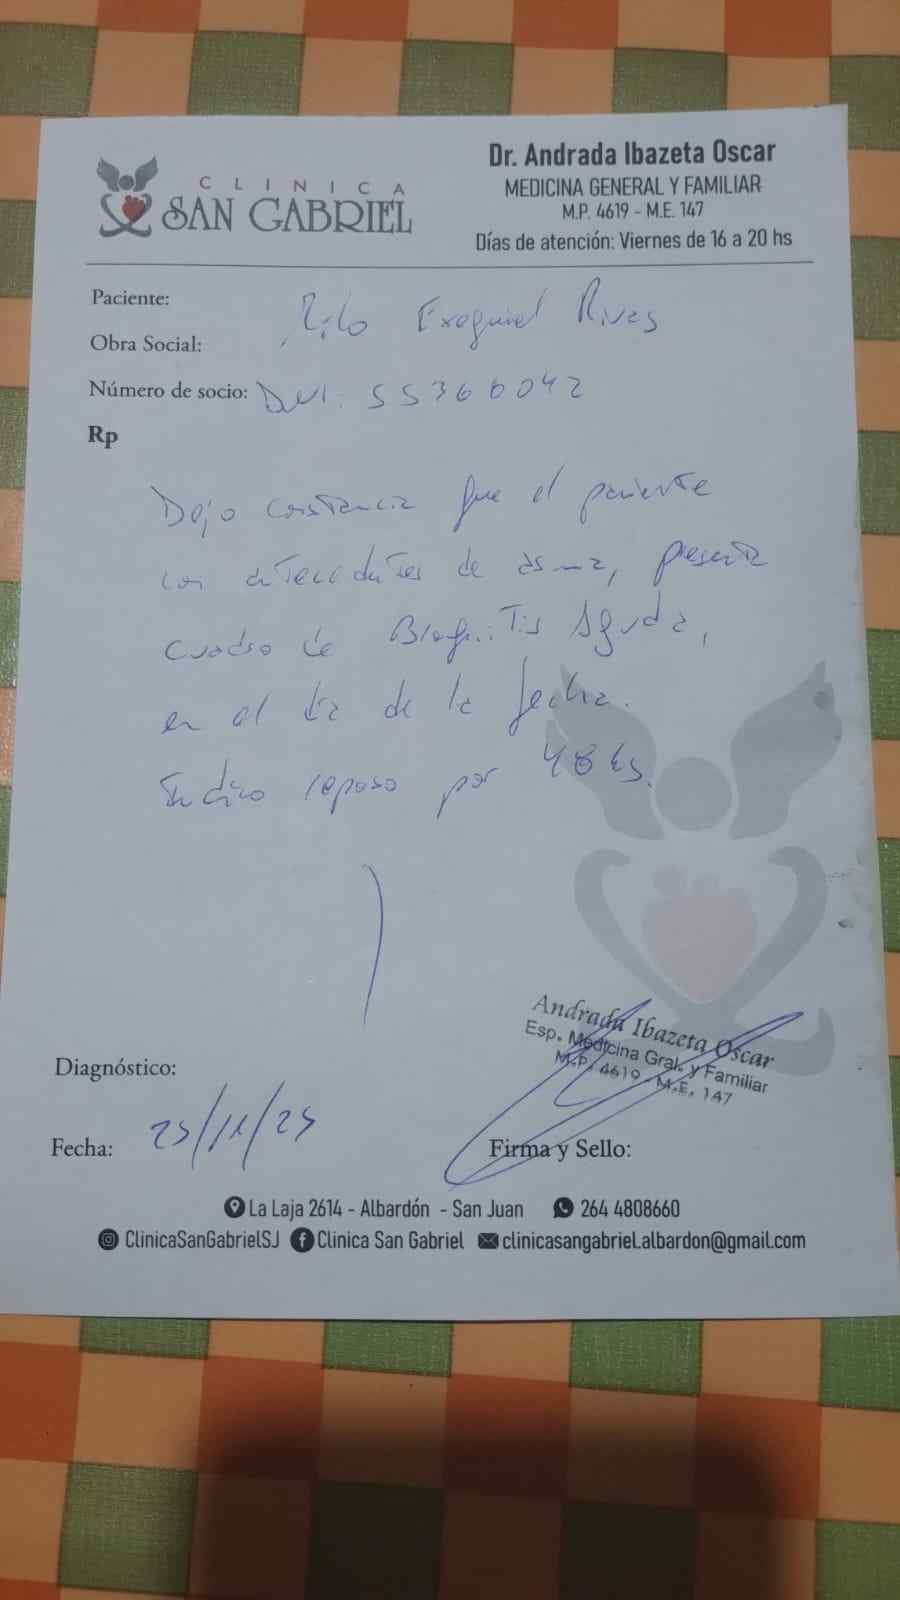 CLINICA
SAN GABRIEL
Dr. Andrada Ibazeta Oscar
MEDICINA GENERAL Y FAMILIAR
M.P. 4619 - M.E. 147
Días de atención: Viernes de 16 a 20 hs
Paciente: Exequiel Rivas
Obra Social:
Número de socio: DNI: 55360042
Rp
Dejo constancia que el paciente
con antecedentes de asma, presenta
cuadro de Aguda,
en el día de la fecha.
Indico reposo por 48 hs.
Andrada Ibazeta Oscar
Esp. Medicina Gral. y Familiar
M.P. 4619 - M.E. 147
Diagnóstico:
Fecha:
Firma y Sello:
La Laja 2614 - Albardón - San Juan 264 4808660
ClinicaSanGabrielSJ Clinica San Gabriel clinicasangabriel.albardon@gmail.com